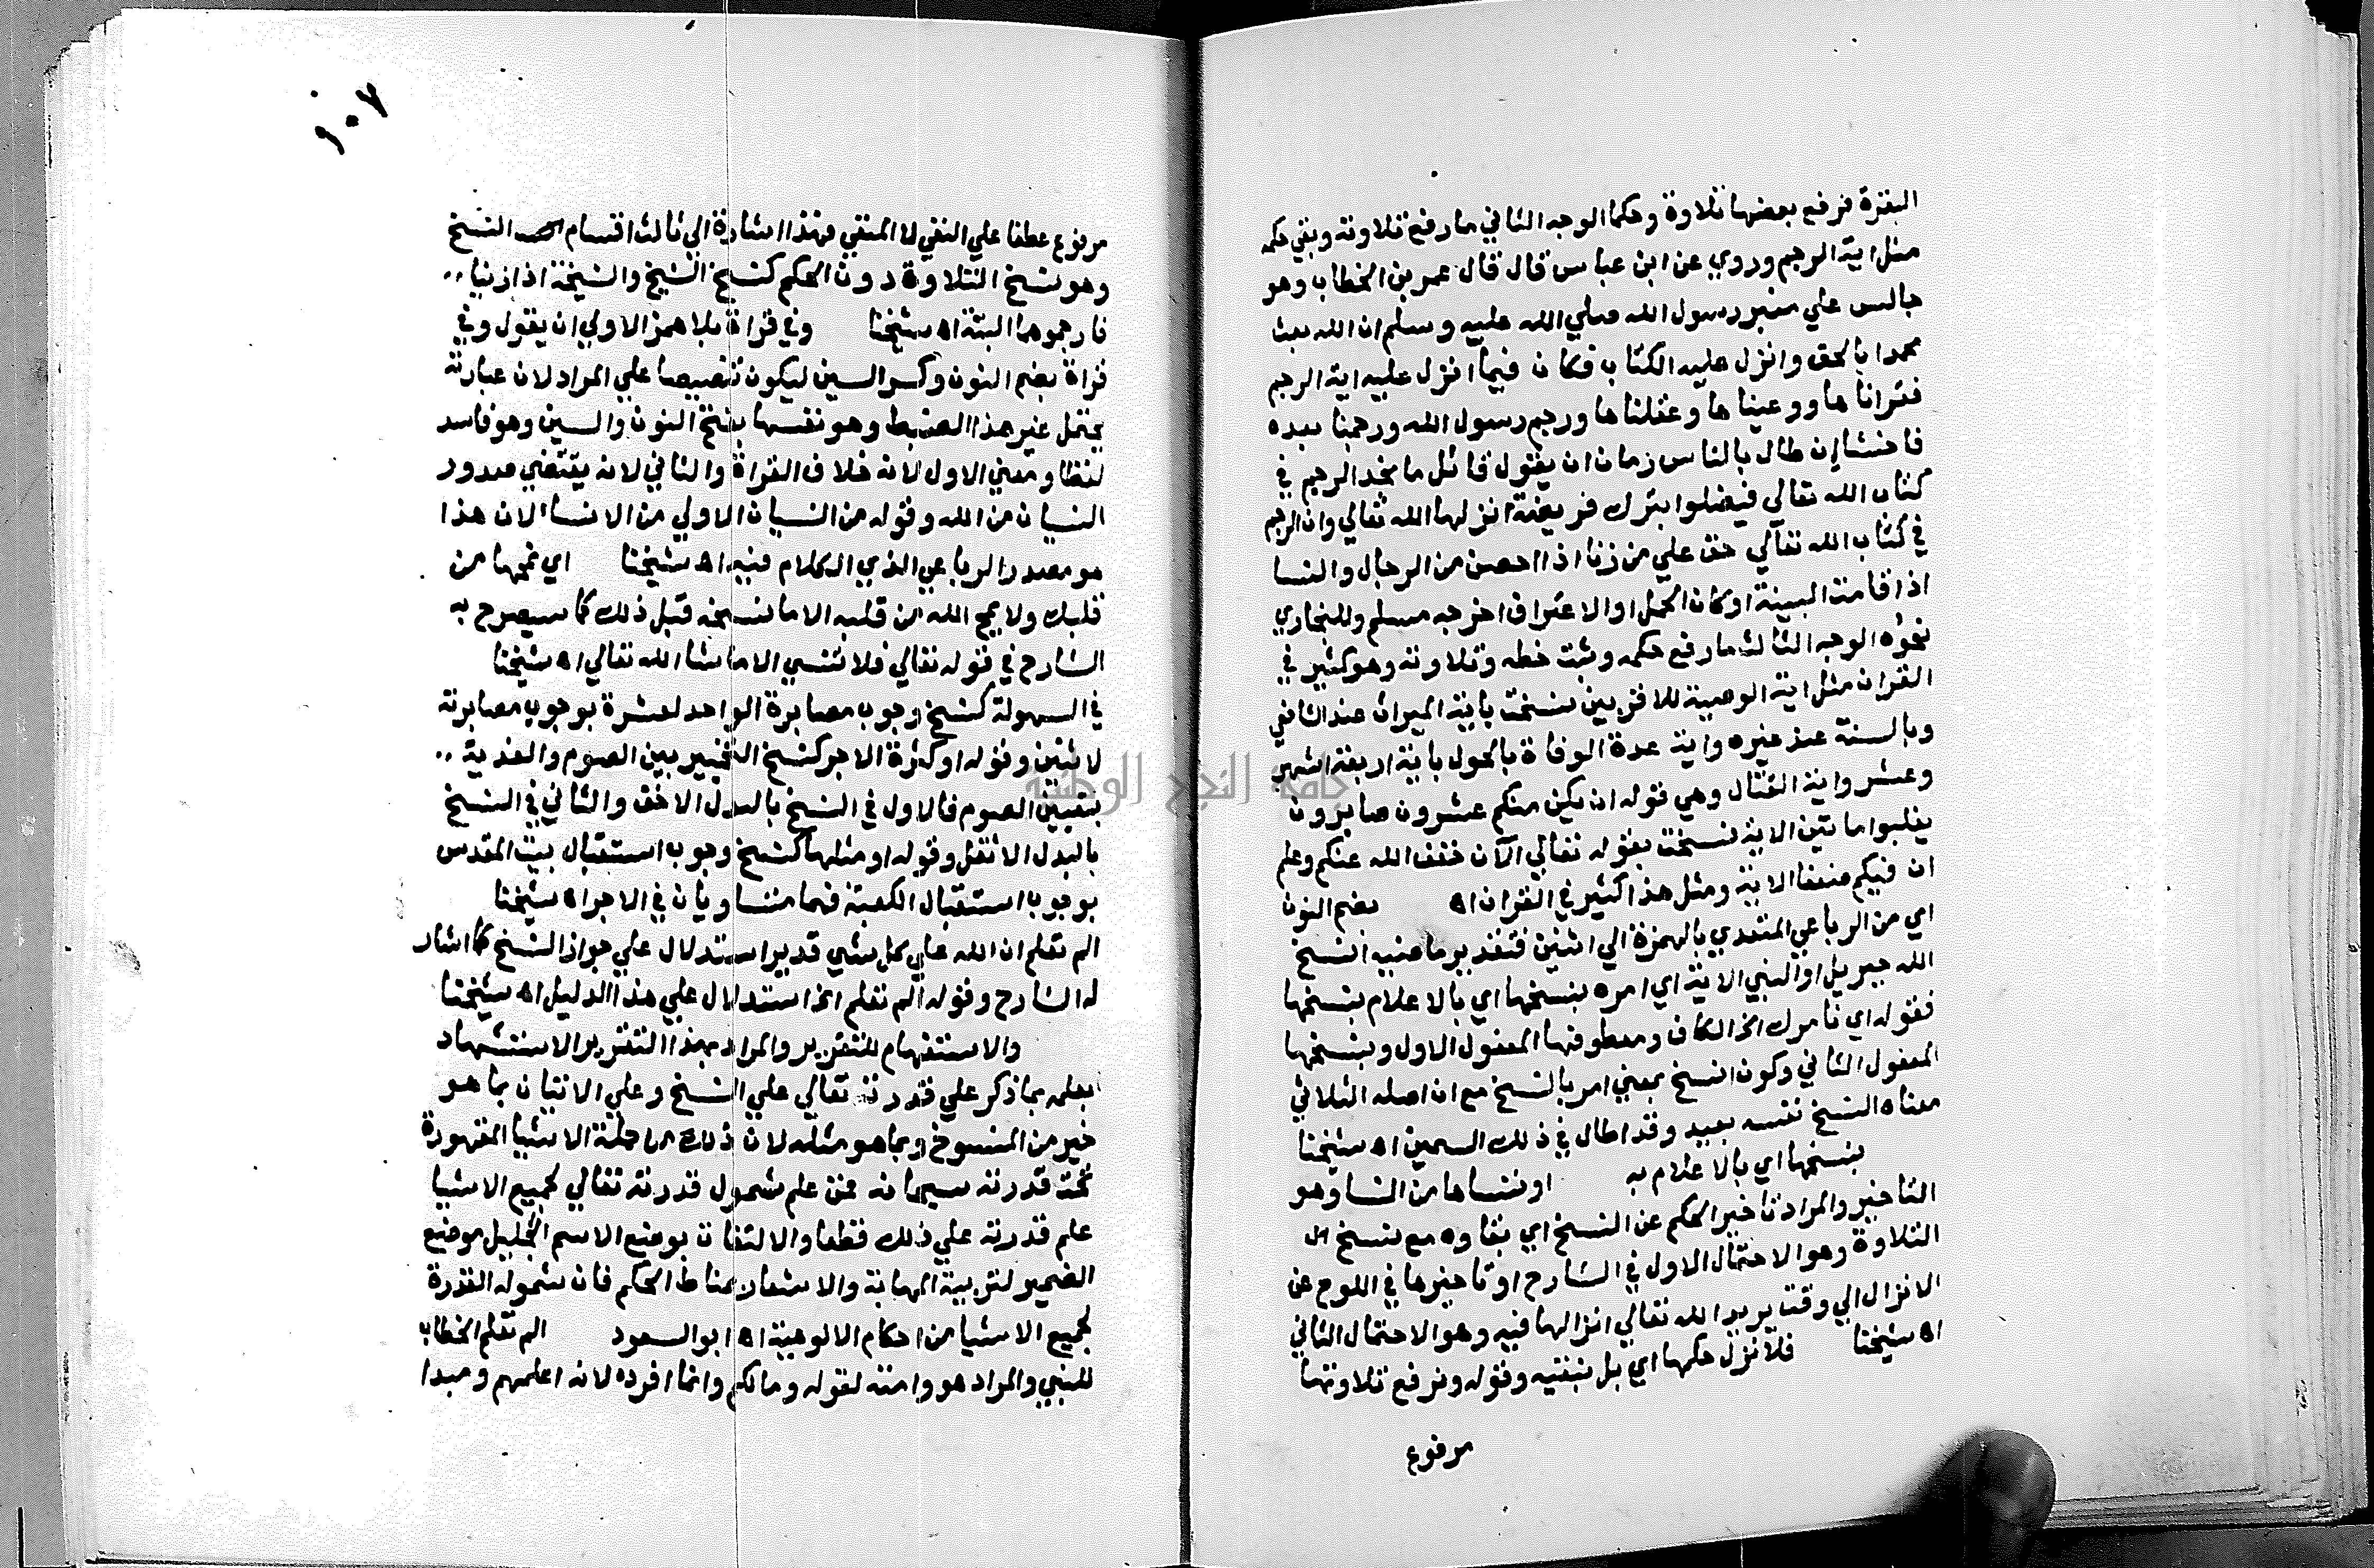 البقرة فرفع بعضها تلاوة وحكما الوجه الثاني ما رفع تلاوته وبقي حكمه
مثل اية الرجم وروي عن ابن عباس قال قال عمر بن الخطاب وهو
جالس علي منبر رسول الله صلي الله عليه وسلم ان الله بعث
محمدا بالحق وانزل عليه الكتاب فكان فيما انزل عليه اية الرجم
فقراناها ووعيناها وعقلناها ورجم رسول الله ورجمنا بعده
فاخشا إن طال بالناس زمان ان يقول قائل ما نجد الرجم في
كتاب الله تعالي فيضلوا بترك فريضة انزلها الله تعالي وان الرجم
في كتاب الله تعالي حق علي من زنا اذا احصن من الرجال والنسا
اذا قامت البينة او كان الحمل او الاعتراف اخرجه مسلم وللبخاري
نحوه الوجه الثالث ما رفع حكمه وثبت خطه وتلاوته وهو كثير في
القران مثل اية الوصية للاقربين نسخت باية الميراث عند الشافعي
وبالسنة عند غيره واية عدة الوفاة بالحول باية اربعة اشهر
وعشر واية القتال وهي قوله ان يكن منكم عشرون صابرون
يغلبوا مائتين الاية نسخت بقوله تعالي الآن خفف الله عنكم وعلم
ان فيكم ضعفا الاية ومثل هذا كثير في القران اه بضم النون
اي من الرباعي المتعدي بالهمزة الي اثنين فتقدير ما ضيه انسخ
الله جبريل او النبي الاية اي امره بنسخها اي بالاعلام بنسخها
فقوله اي نامرك الخ الكاف ومعطوفها المفعول الاول وبنسخها
المفعول الثاني وكون انسخ بمعني امر بالنسخ مع ان اصله الثلاثي
معناه النسخ نفسه بعيد وقد اطال في ذلك السمين اه شيخنا
بنسخها اي بالاعلام به او ننساها من النسا وهو
التاخير والمراد تاخير الحكم عن النسخ اي بقاوه مع نسخ
التلاوة وهو الاحتمال الاول في الشارح او تاخيرها في اللوح عن
الانزال الي وقت يريد الله تعالي انزالها فيه وهو الاحتمال الثاني
اه شيخنا فلا نزل حكمها اي بل نبقيه وقوله ونرفع تلاوتها
مرفوع
١٠٧
مرفوع عطفا علي النفي لا المنفي فهذا اشارة الي ثالث اقسام النسخ
وهو نسخ التلاوة دون الحكم كنسخ الشيخ والشيخة اذا زنيا
فارجموهما البتة اه شيخنا وفي قراة بلا همز الاولي ان يقول وفي
قراة بضم النون وكسر السين ليكون تنصيصا علي المراد لان عبارته
يحتمل غير هذا الضبط وهو نفسها بفتح النون والسين وهو فاسد
لفظا ومعني الاول لانه خلاف القراة والثاني لانه يقتضي صدور
النسيان من الله وقوله من النسيان الاولي من الانسا لان هذا
هو مصدر الرباعي الذي الكلام فيه اه شيخنا اي نمحها من
قلبك ولا يمح الله من قلبه الا ما نسخه قبل ذلك كما سيصرح به
الشارح في قوله تعالي فلا تنسي الا ما شا الله تعالي اه شيخنا
في السهولة كنسخ وجوب مصابرة الواحد لعشرة بوجوب مصابرته
لاثنين وقوله او كثرة الاجر كنسخ التخيير بين الصوم والفدية
بتعيين الصوم فالاول في النسخ بالبدل الاخف والثاني في النسخ
بالبدل الاثقل وقوله او مثلها كنسخ وجوب استقبال بيت المقدس
بوجوب استقبال الكعبة فهما متساويان في الاجر اه شيخنا
الم تعلم ان الله علي كل شي قدير استدلال علي جواز النسخ كما اشار
له الشارح وقوله ألم تعلم الخ استدلال علي هذا الدليل اه شيخنا
والاستفهام للتقرير والمراد بهذا التقرير الاستشهاد
بعلمه بما ذكر علي قدرته تعالي علي النسخ وعلي الاتيان بما هو
خير من المنسوخ وبما هو مثله لان ذلك من جملة الاشيا المقهورة
تحت قدرته سبحانه فمن علم شمول قدرته تعالي لجميع الاشيا
علم قدرته علي ذلك قطعا والالتفات بوضع الاسم الجليل موضع
الضمير لتربية المهابة والاشعار بمناط الحكم فان شموله القدرة
لجميع الاشيا من احكام الالوهية اه ابو السعود الم تعلم الخطاب
للنبي والمراد هو وامته لقوله وما لكم وانما افرده لانه اعلمهم ومبدا
جامعة النجاح الوطنية